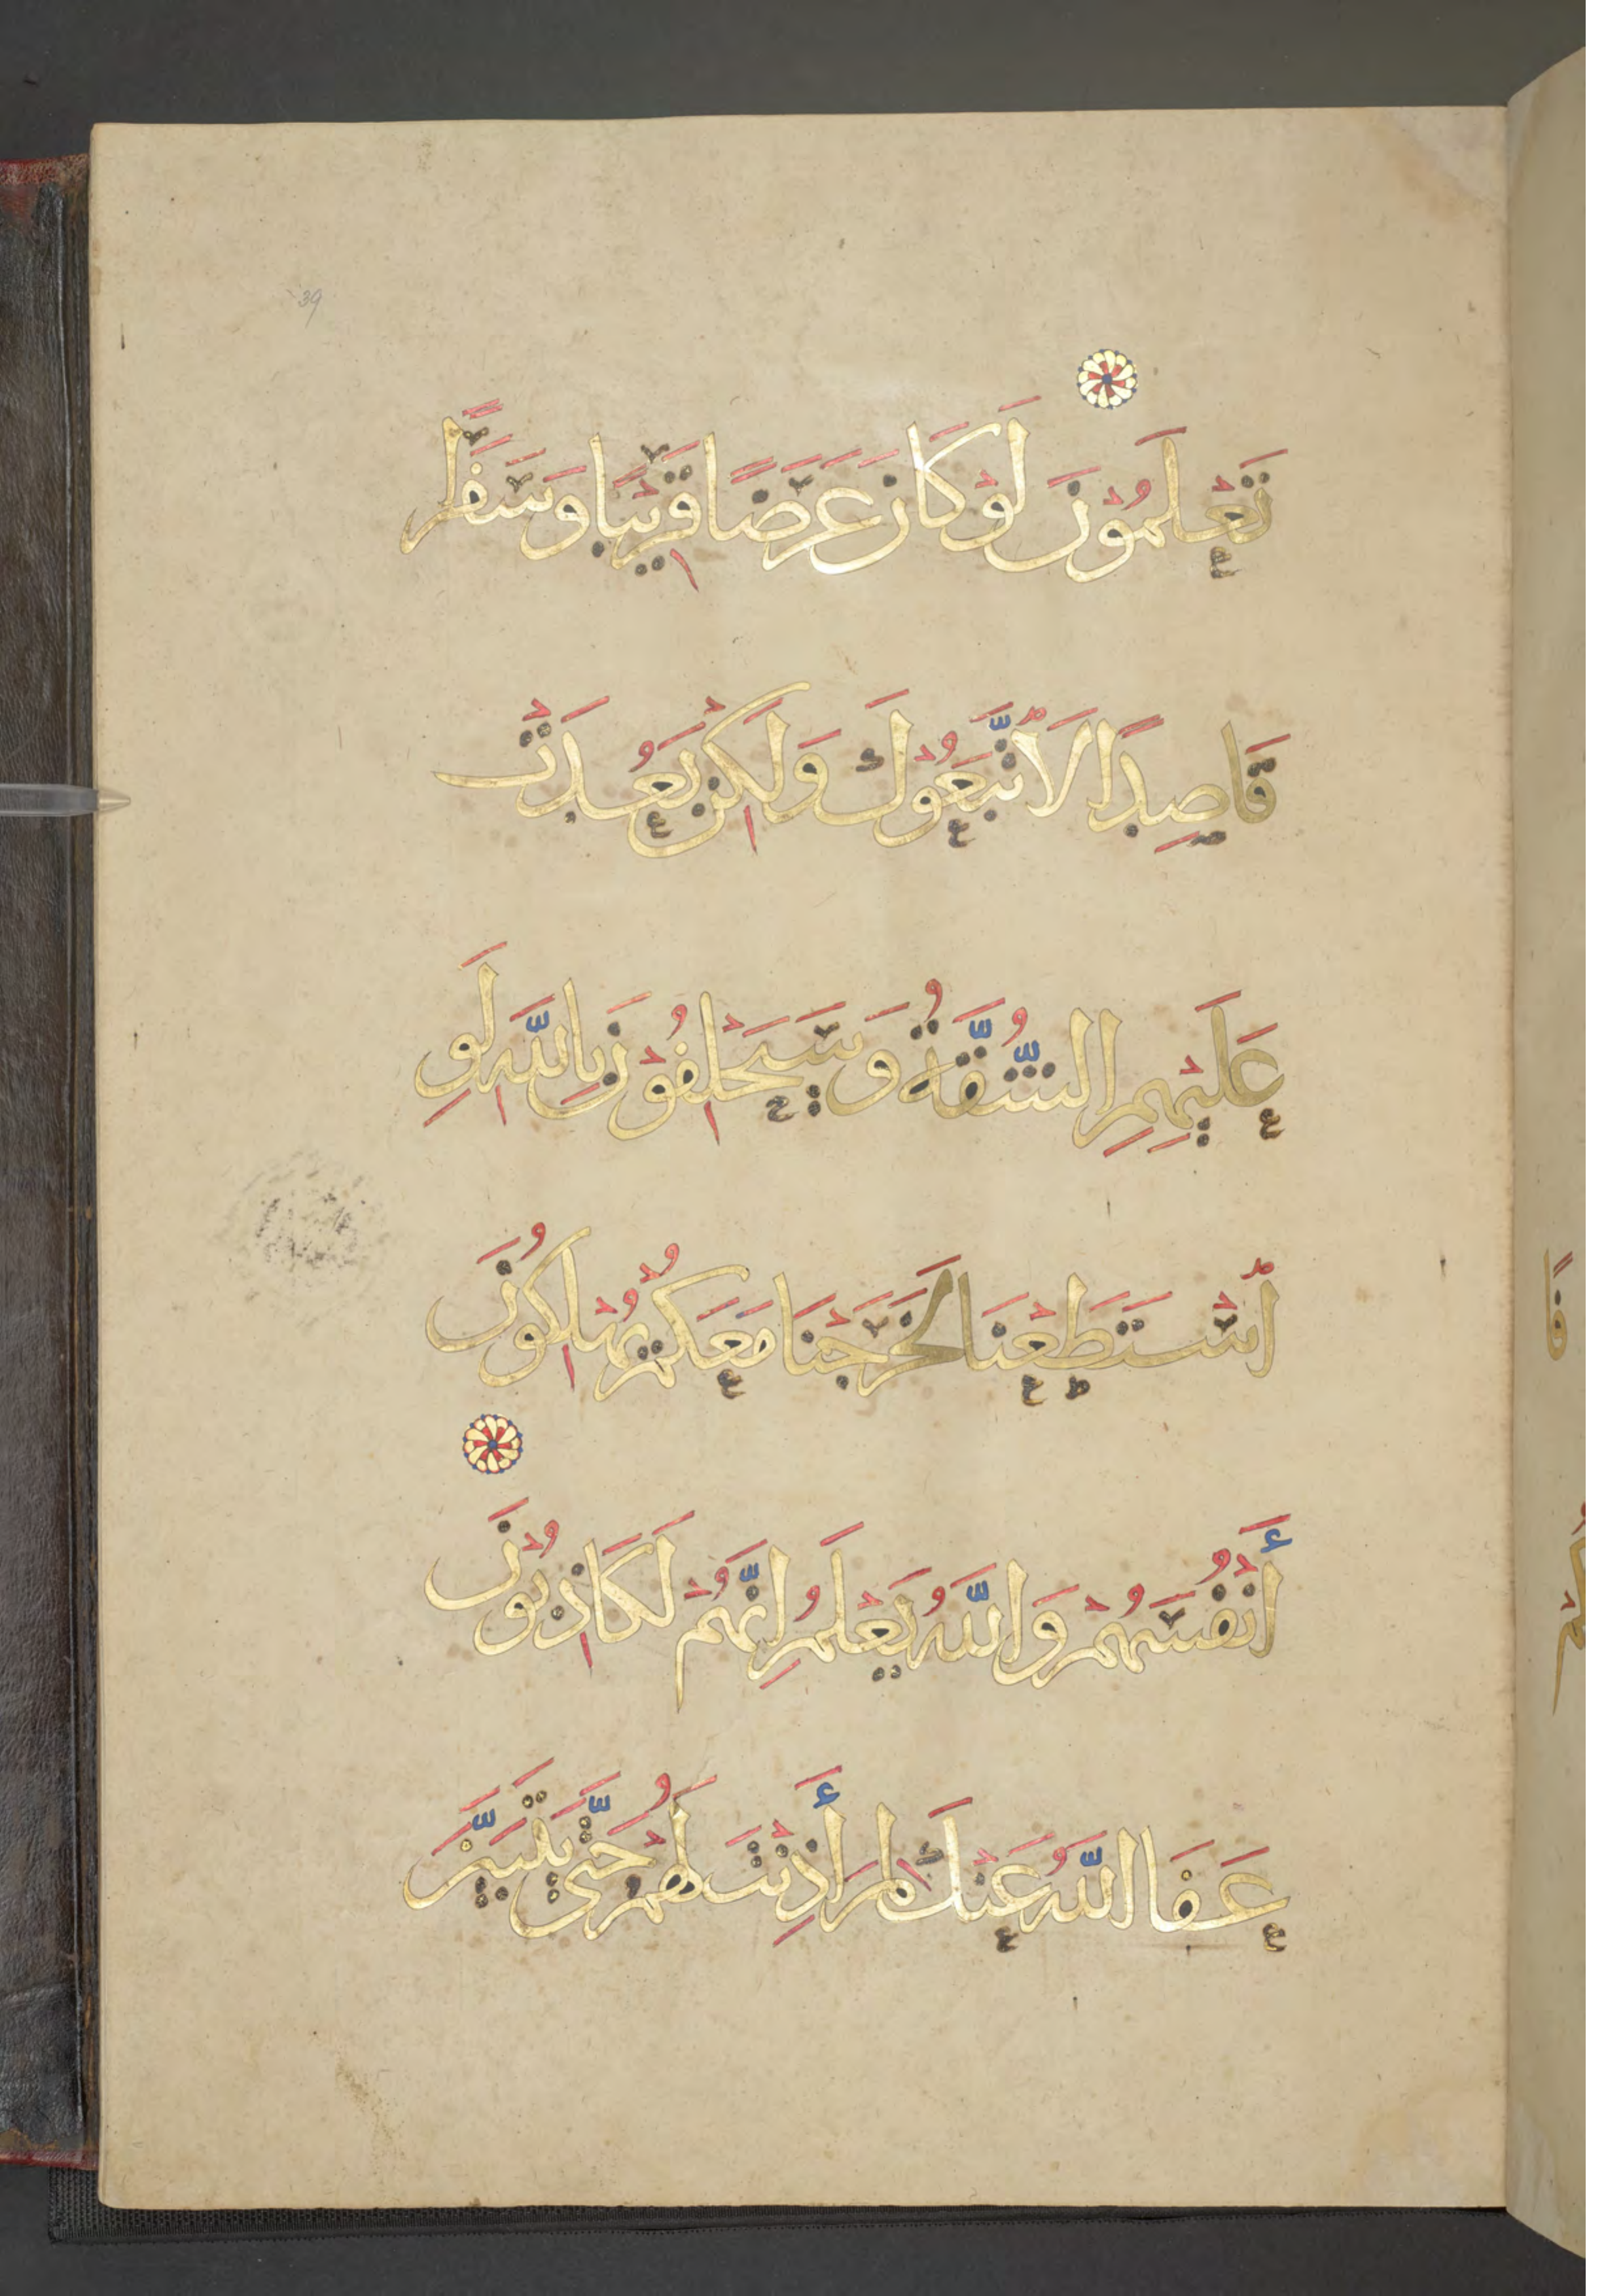 39
تَعْلَمُوْنَ لَوْ كَانَ عَرَضًا قَرِيْبًا وَسَفَرًا
قَاصِدًا لَاتَّبَعُوْكَ وَلَكِنْ بَعُدَتْ
عَلَيْهِمِ الشُّقَّةُ وَسَيَحْلِفُوْنَ بِاللَّهِ لَوِ
اسْتَطَعْنَا لَخَرَجْنَا مَعَكُمْ يُهْلِكُوْنَ
أَنْفُسَهُمْ وَاللَّهُ يَعْلَمُ إِنَّهُمْ لَكَاذِبُوْنَ
عَفَا اللَّهُ عَنْكَ لِمَ أَذِنْتَ لَهُمْ حَتَّى يَتَبَيَّنَ